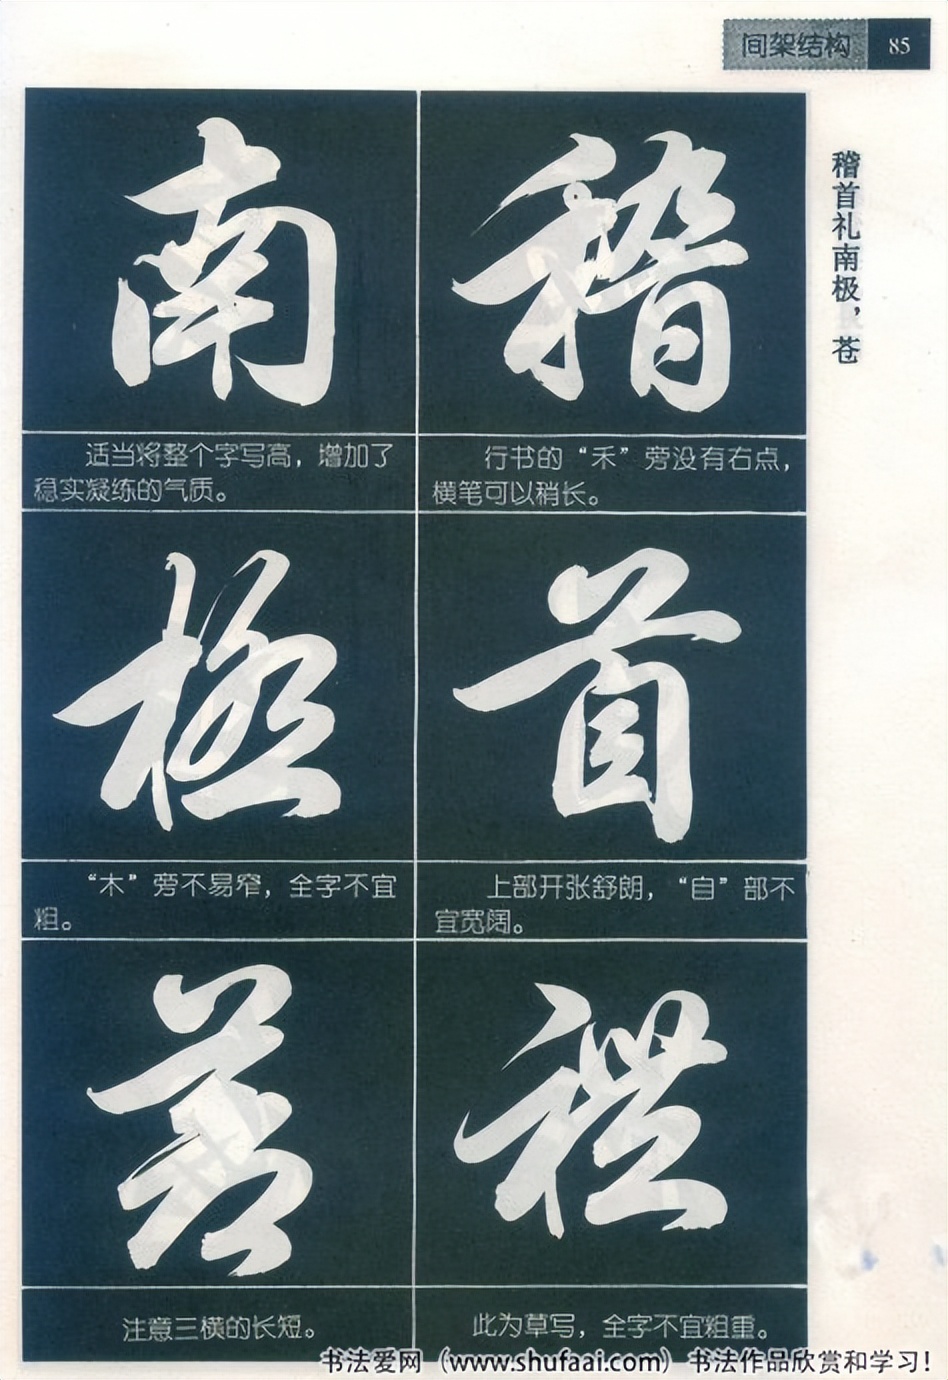 间架结构 85
稽首礼南极，苍
稽
行书的“禾”旁没有右点，
横笔可以稍长。
首
上部开张舒朗，“自”部不
宜宽阔。
禮
此为草写，全字不宜粗重。
南
适当将整个字写高，增加了
稳实凝练的气质。
極
“木”旁不易窄，全字不宜
粗。
苍
注意三横的长短。
书法爱网（www.shufaai.com）书法作品欣赏和学习！